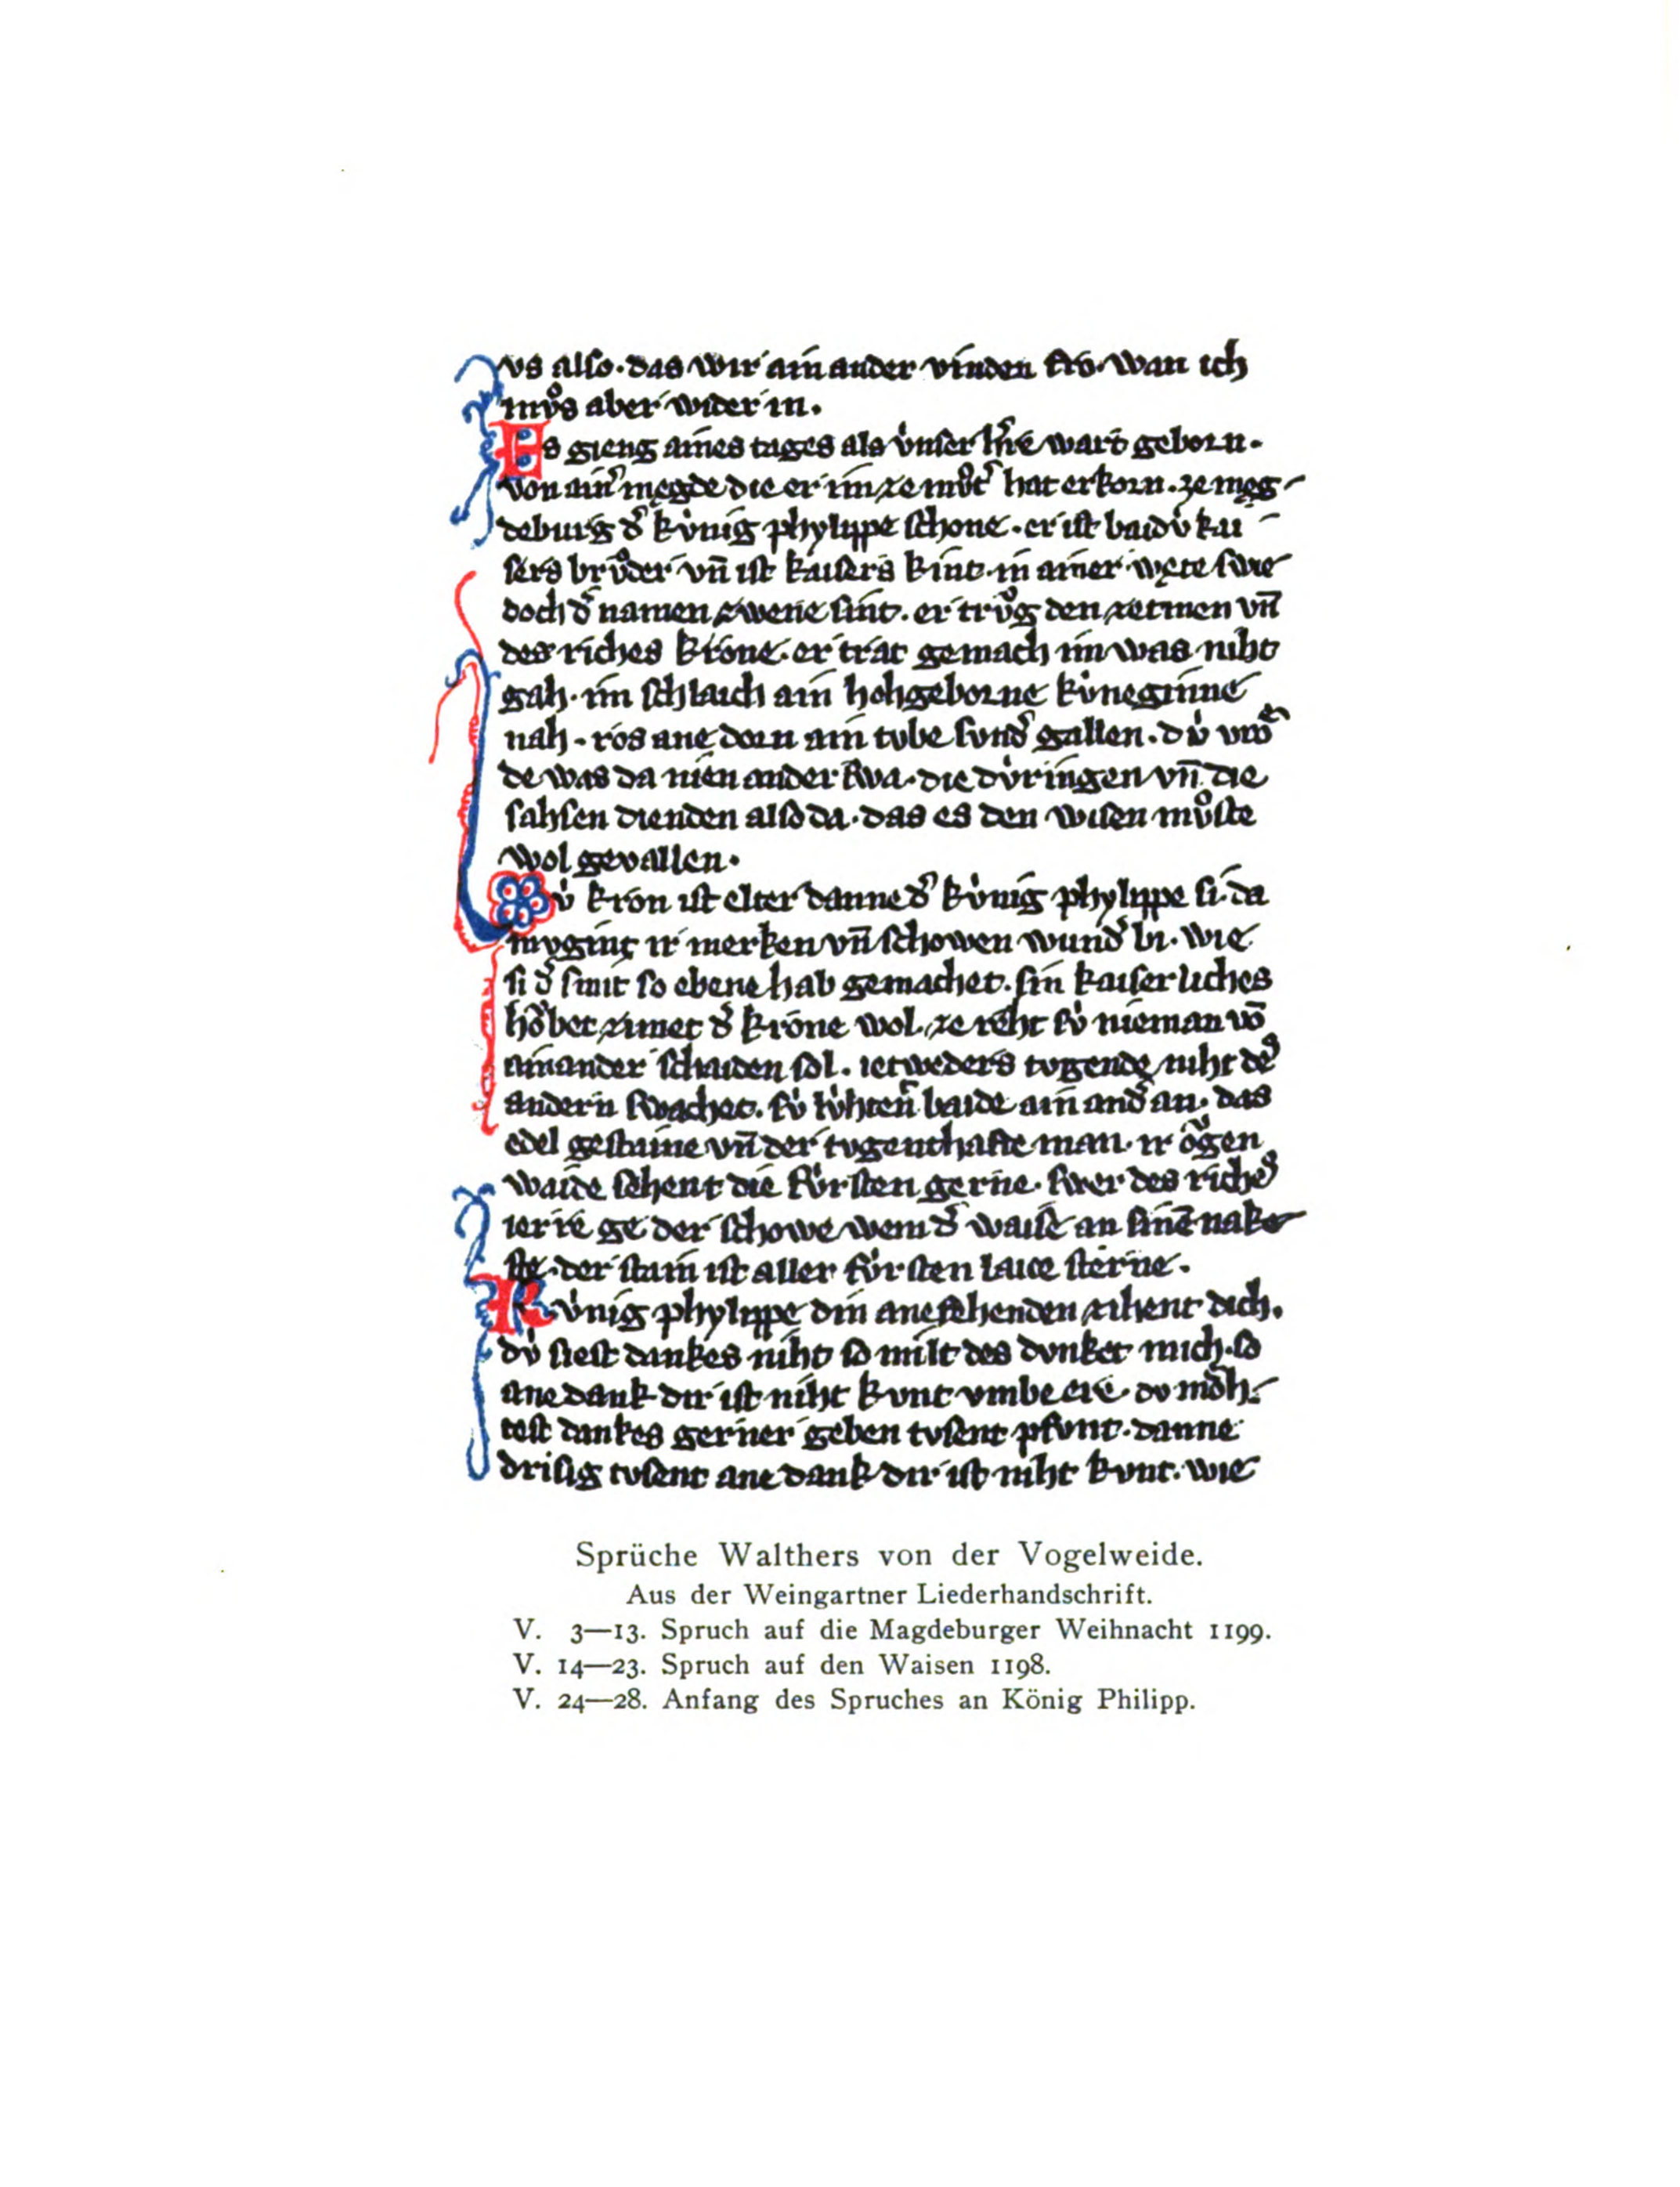 vs also. das wir ain ander vinden fro. wan ich
mv̊s aber wider in.
Es gieng aines tages als v́nser h̓re wart geborn.
von ain̓ megde die er im ze mv̊t̓ hat erkorn. ze meg-
deburg d̓ kv́nig phylippe schone. er ist baidv́ kai-
sers brv̊der vn̄ ist kaisers kint. in ainer wete swie
doch d̓ namen zwene sint. er trv̊g den zetmen vn̄
des riches krone. er trat gemach im was niht
gah. im schlaich ain hohgeborne kv́neginne
nah. ros ane dorn ain tvbe svnd̓ gallen. dv́ vrō
de was da nien ander swa. die dv́ringen vn̄ die
sahsen dienden also da. das es den wisen mv̊ste
wol gevallen.
Dv́ kron ist elter danne d̓ kv́nig phylippe si. da
mvgint ir merken vn̄ schowen wund̓ bi. wie
si d̓ smit so ebene hab gemachet. sin kaiserliches
hǒbet zimet d̓ krone wol. ze reht sv́ nieman vō
ainander schaiden sol. ietweders tvgende niht de̓
andern swachet. sv́ lv́hten̄ baide ain and̓ an. das
edel gestaine vn̄ der tvgenthafte man. ir ǒgen
waide sehent die fv́rsten gerne. swer des riche̓
ierre ge der schowe wem d̓ waise an sinē nake
ste. der stam ist aller fv́rsten laite sterne.
Kv́nig phylippe din anesehenden zihent dich.
dv́ siest dankes niht so milt des dvnket mich. so
ane dank dir ist niht kvnt vmbe ere. dv mǒh-
test dankes gerner geben tvsent pfvnt. danne
drisig tvsent ane dank dir ist niht kvnt. wie
Sprüche Walthers von der Vogelweide.
Aus der Weingartner Liederhandschrift.
V. 3—13. Spruch auf die Magdeburger Weihnacht 1199.
V. 14—23. Spruch auf den Waisen 1198.
V. 24—28. Anfang des Spruches an König Philipp.